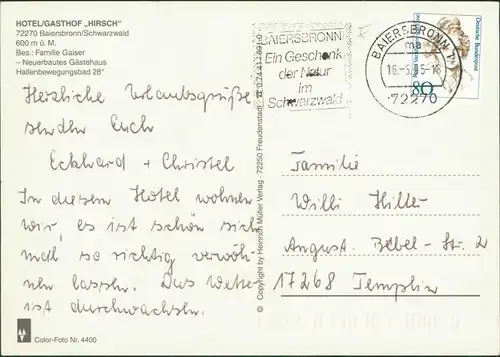 HOTEL/GASTHOF „HIRSCH"
72270 Baiersbronn/Schwarzwald
600 m ü. M.
Bes.: Familie Gaiser
– Neuerbautes Gästehaus
Hallenbewegungsbad 28°
Herzliche Urlaubsgrüße
senden Euch
Eckhard + Christel
In diesem Hotel wohnen
wir, es ist schön sich
mal so richtig verwöh-
nen lassen. Das Wetter
ist durchwachsen.
Color-Foto Nr. 4400
© Copyright by Heinrich Müller Verlag · 72250 Freudenstadt
BAIERSBRONN
Ein Geschenk
der Natur
im
Schwarzwald
BAIERSBRONN 1
ma
16.-5.95-18
72270
Deutsche Bundespost
80
Familie
Willi Hiller
August-Bebel-Str. 2
17268 Templin